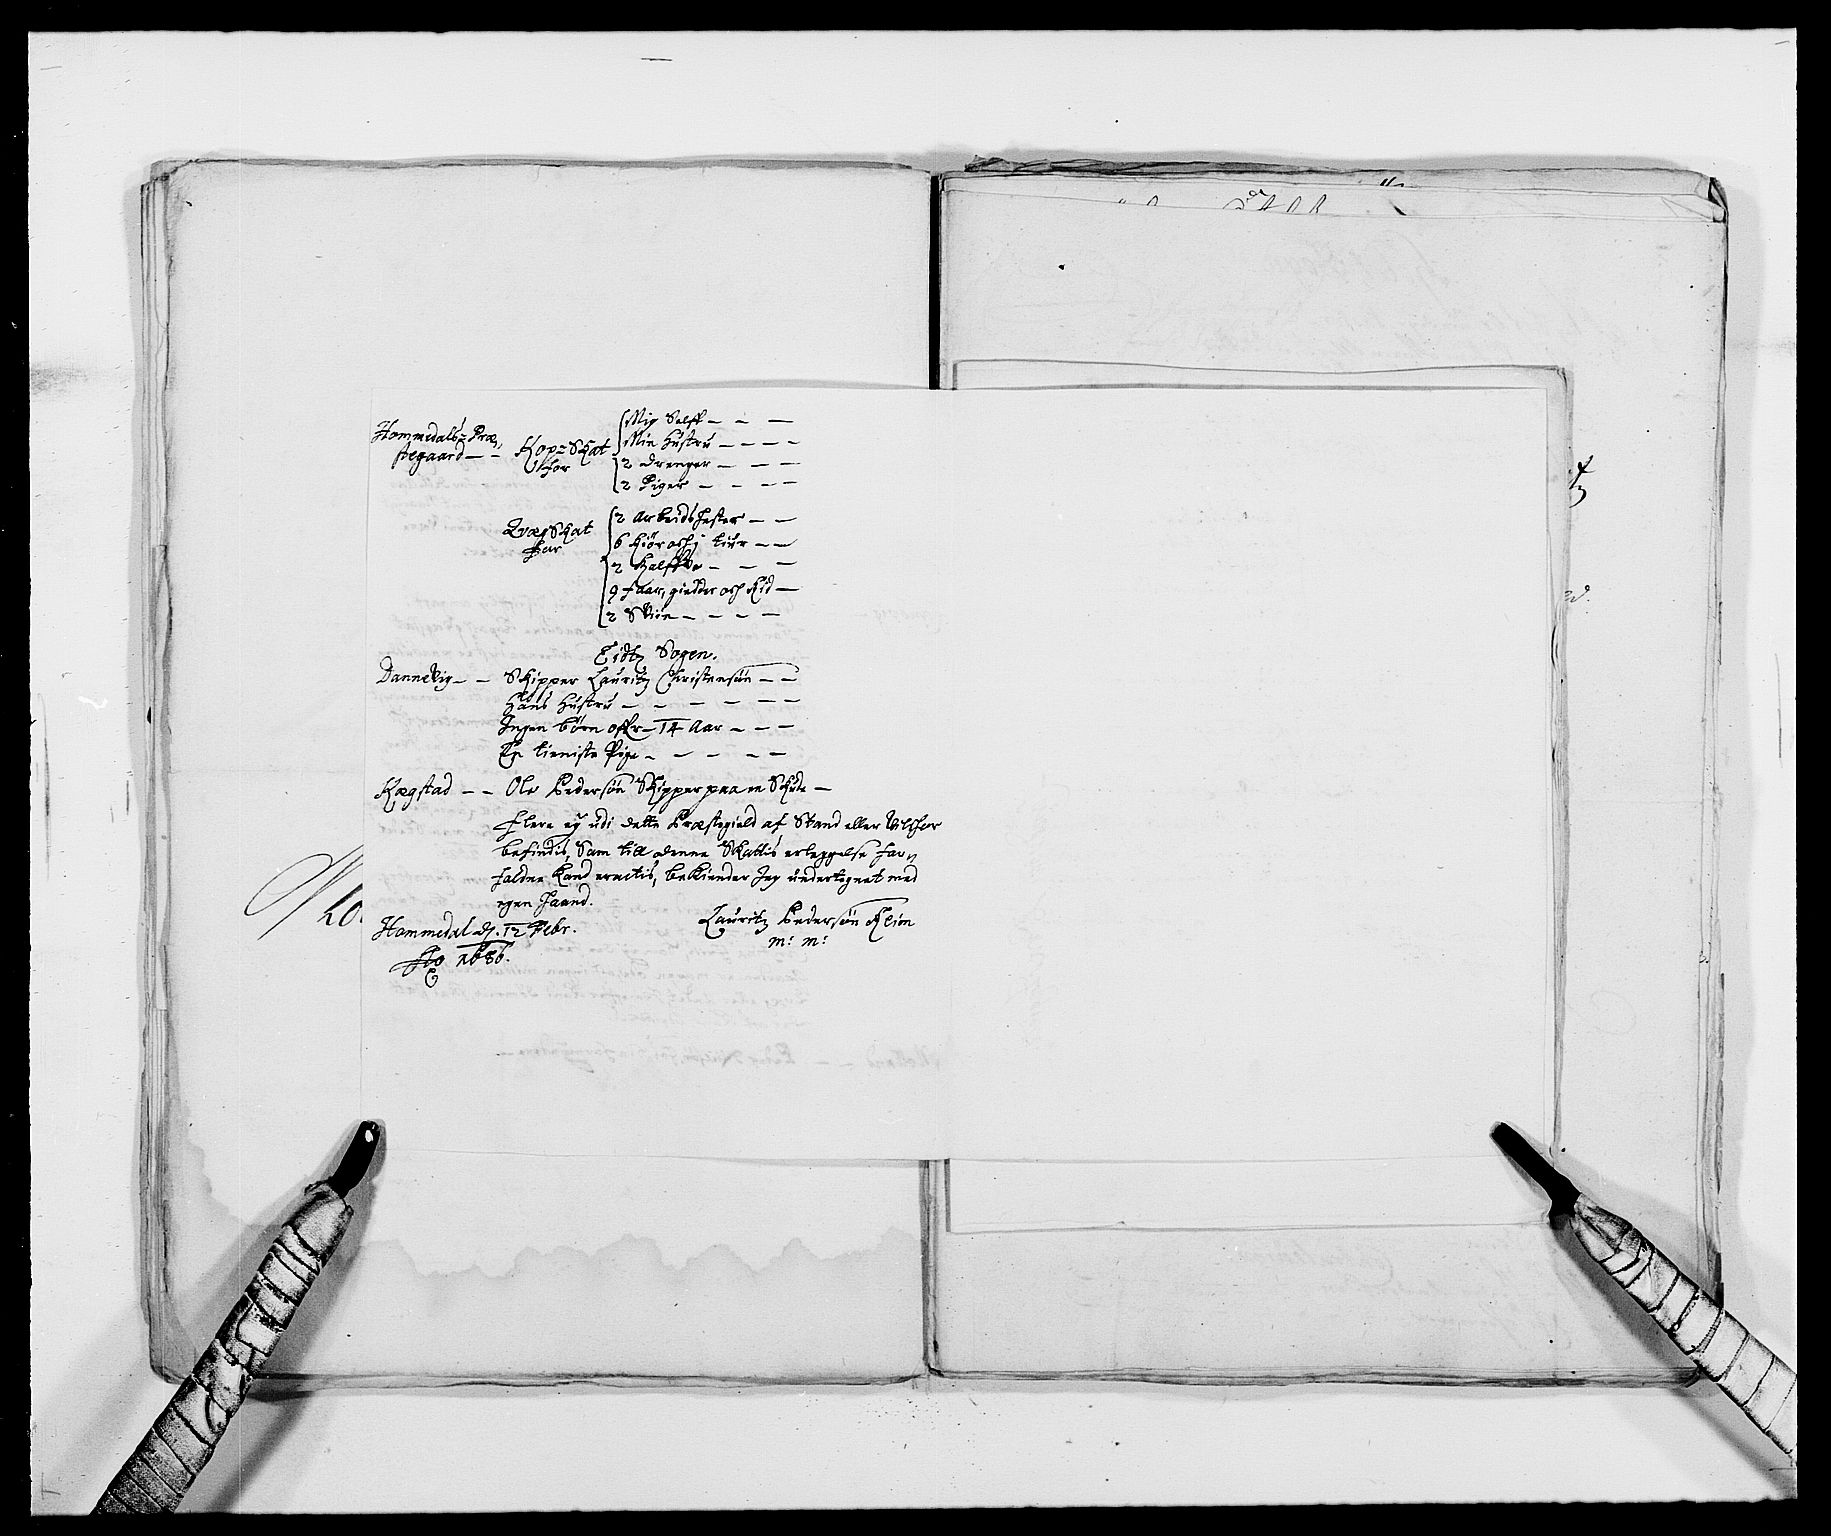 Hommedals Præ,
stegaard – – Kop=Skat
for
Mig Selff – – –
Min Hustru – – – –
2 Drenger – – –
2 Piger – – – –
Qvæg Skat
for
2 Arbeids hester – –
6 Kiør och 1 tiur – –
2 Kalffve – – –
9 faar, gieder och Kid –
2 Sviin – – – –
Eidtz Sogen.
Dannevig – – Skipper Lauritz Christensøn – –
Hans Hustru – – – – – –
Ingen børn offr – 14 Aar – – –
En tieniste Pige – – – – –
Kægstad – – Ole Pedersøn Skipper paa en Skude –
Flere ey udi dette Præstegield af Stand eller Vilchor
befindis, Som till denne Skattis erleggelse for,
falden kand eractis, bekiender Jeg undertegnet med
egen Haand.
Hommedal d. 12 Febr.
Ao 1686.
Lauritz Pedersøn Klim
m: m: